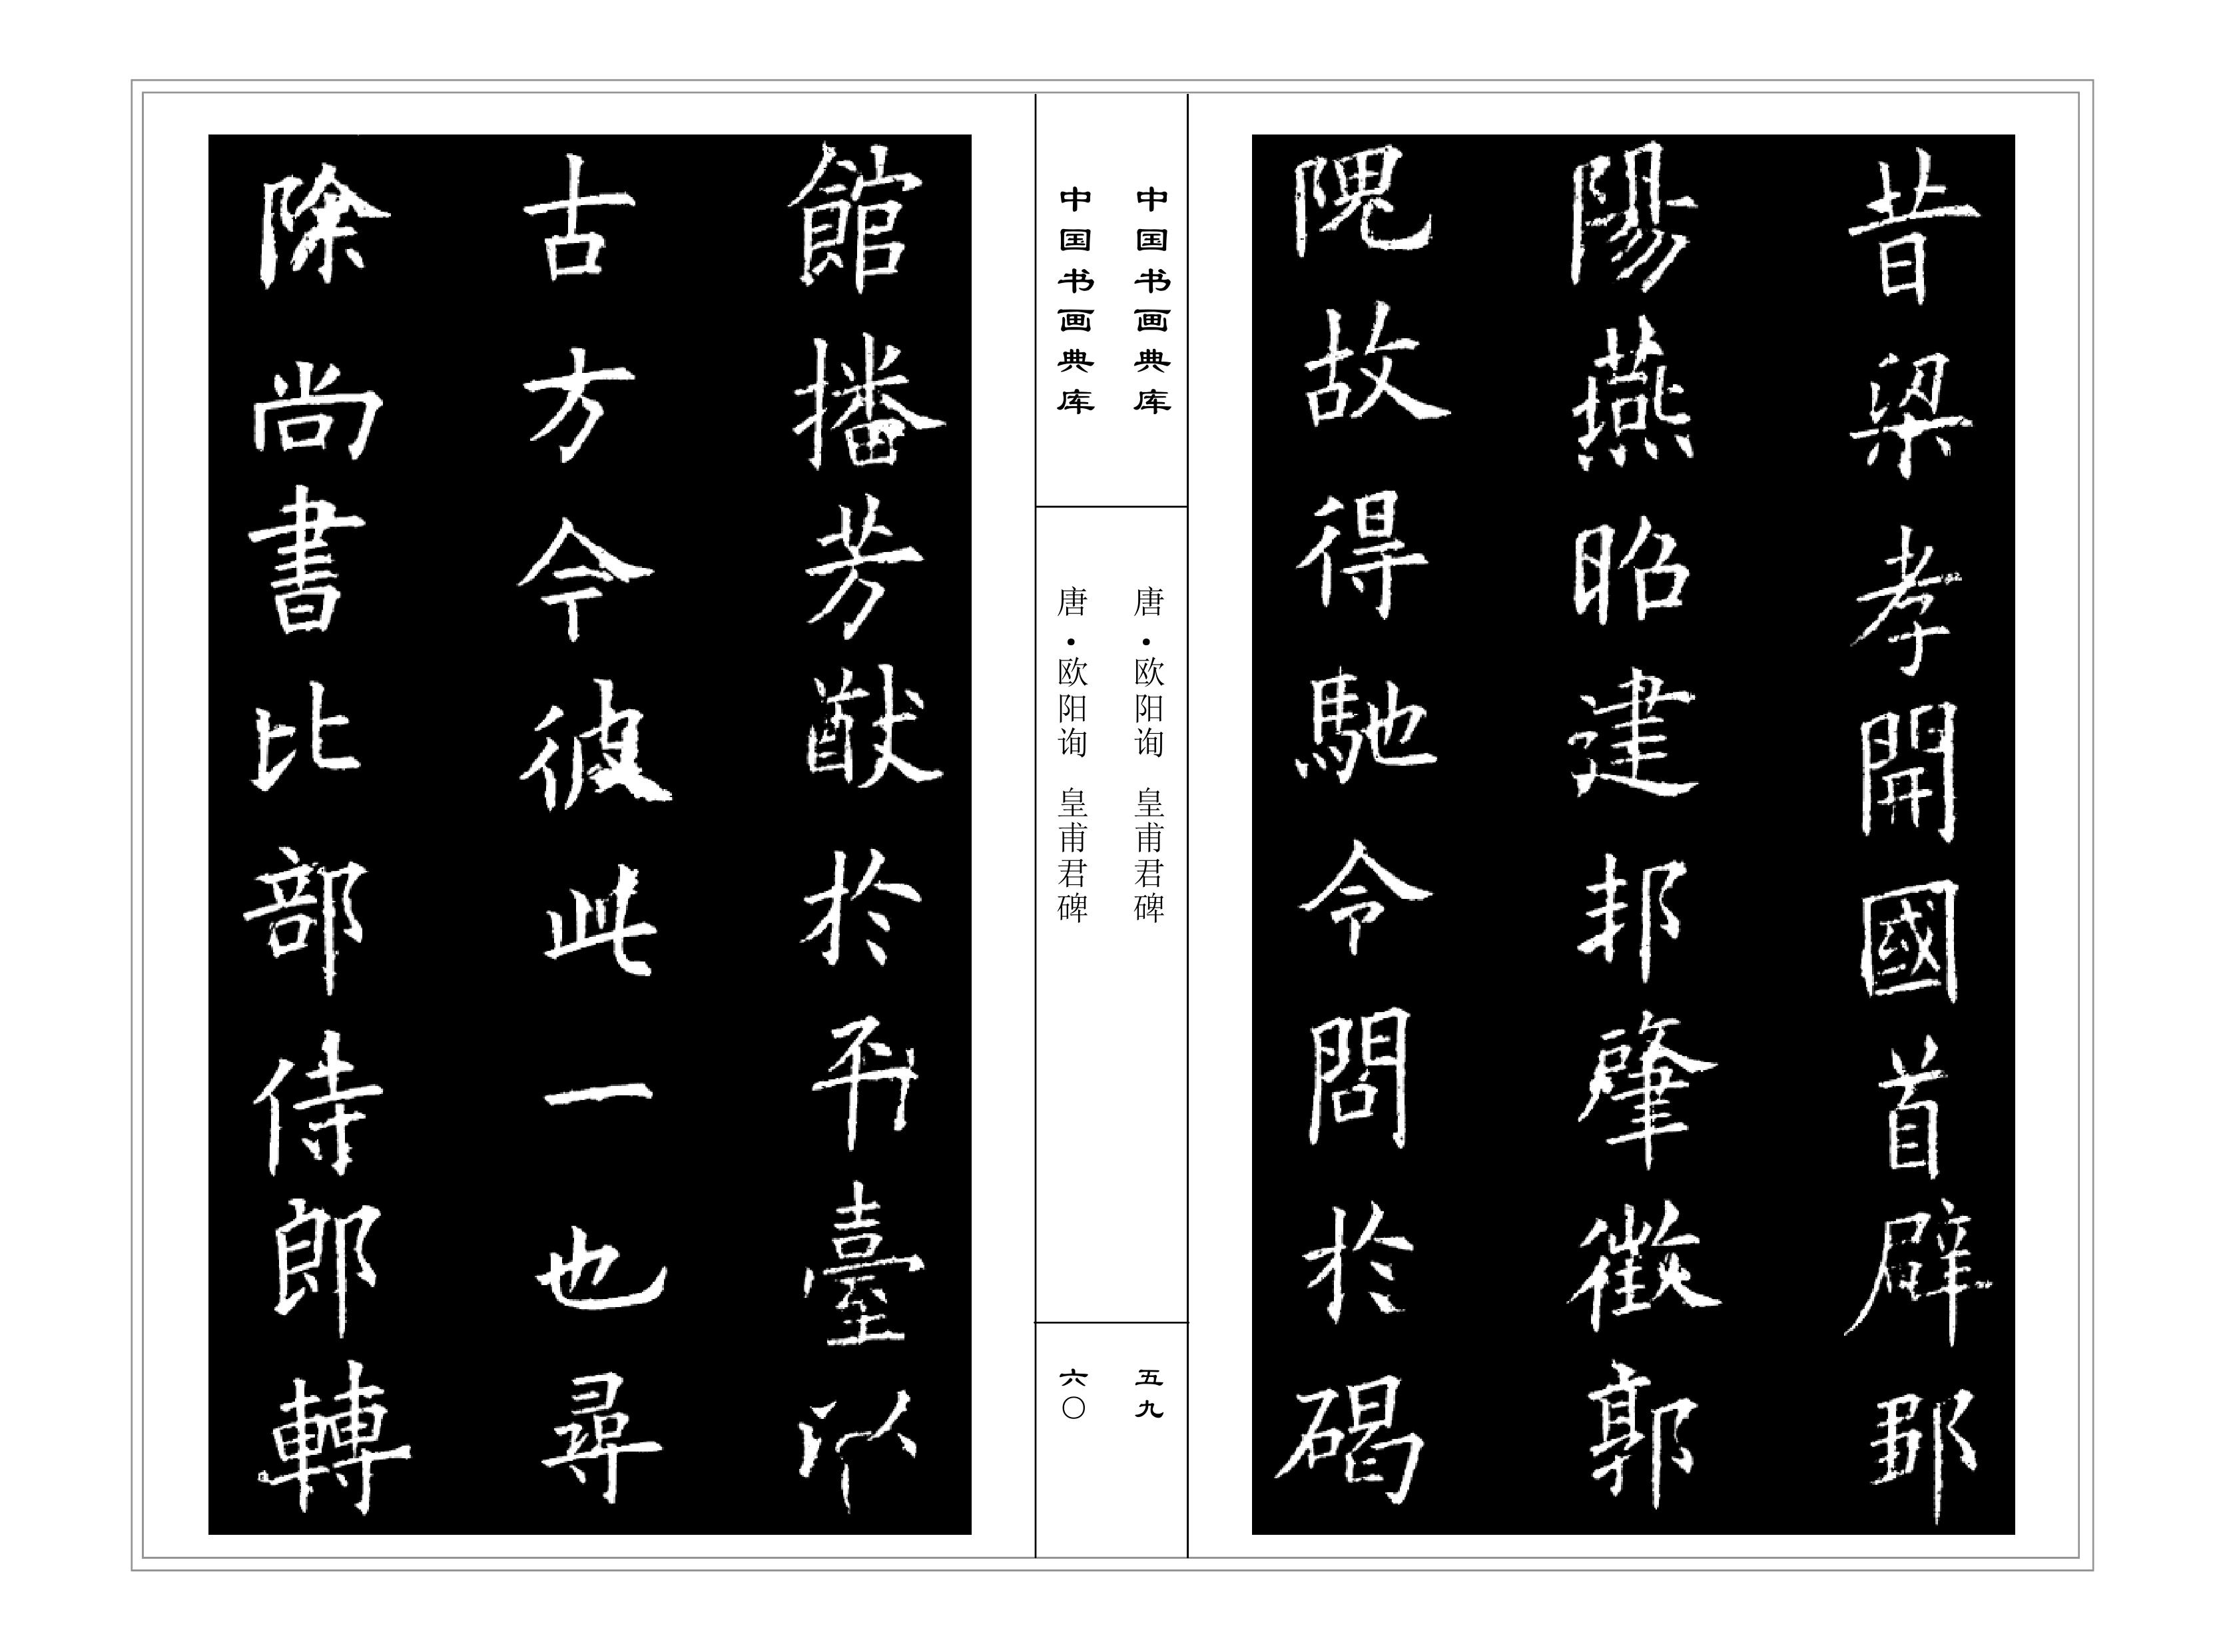 昔梁孝開國首辟鄒
陽燕昭建邦肇徵郭
隗故得馳令問於碣
中国书画典库
唐·欧阳询 皇甫君碑
五九
中国书画典库
唐·欧阳询 皇甫君碑
六〇
館播芳猷於平臺以
古方今彼此一也尋
除尚書比部侍郎轉